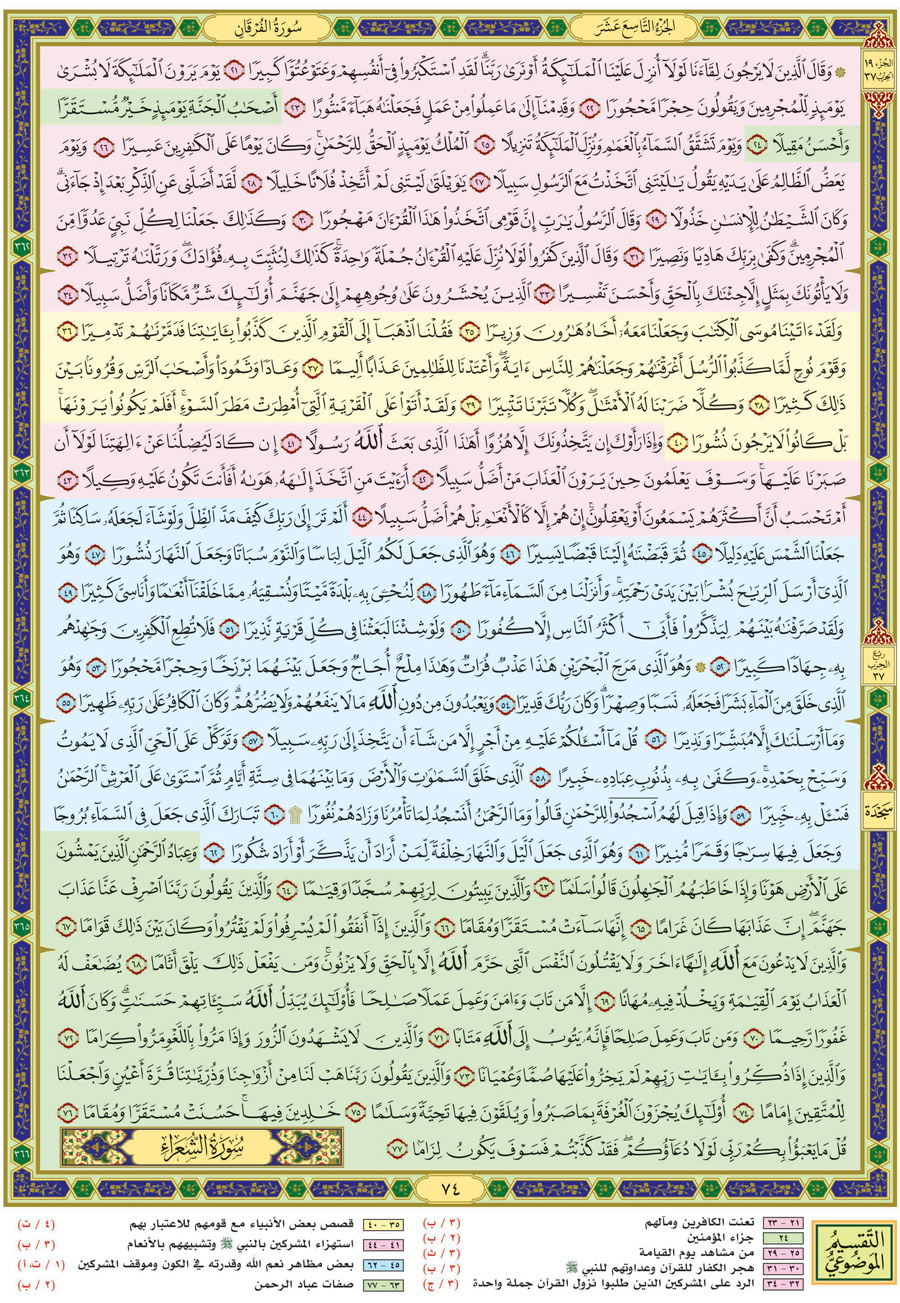 سُورَةُ الفُرْقَانِ
الجُزْءُ التَّاسِعَ عَشَرَ
الجزء ١٩
الحزب ٣٧
۞ وَقَالَ الَّذِينَ لَا يَرْجُونَ لِقَاءَنَا لَوْلَا أُنزِلَ عَلَيْنَا الْمَلَائِكَةُ أَوْ نَرَىٰ رَبَّنَا ۗ لَقَدِ اسْتَكْبَرُوا فِي أَنفُسِهِمْ وَعَتَوْ عُتُوًّا كَبِيرًا ٢١ يَوْمَ يَرَوْنَ الْمَلَائِكَةَ لَا بُشْرَىٰ
يَوْمَئِذٍ لِّلْمُجْرِمِينَ وَيَقُولُونَ حِجْرًا مَّحْجُورًا ٢٢ وَقَدِمْنَا إِلَىٰ مَا عَمِلُوا مِنْ عَمَلٍ فَجَعَلْنَاهُ هَبَاءً مَّنثُورًا ٢٣ أَصْحَابُ الْجَنَّةِ يَوْمَئِذٍ خَيْرٌ مُّسْتَقَرًّا
وَأَحْسَنُ مَقِيلًا ٢٤ وَيَوْمَ تَشَقَّقُ السَّمَاءُ بِالْغَمَامِ وَنُزِّلَ الْمَلَائِكَةُ تَنزِيلًا ٢٥ الْمُلْكُ يَوْمَئِذٍ الْحَقُّ لِلرَّحْمَٰنِ ۚ وَكَانَ يَوْمًا عَلَى الْكَافِرِينَ عَسِيرًا ٢٦ وَيَوْمَ
يَعَضُّ الظَّالِمُ عَلَىٰ يَدَيْهِ يَقُولُ يَا لَيْتَنِي اتَّخَذْتُ مَعَ الرَّسُولِ سَبِيلًا ٢٧ يَا وَيْلَتَىٰ لَيْتَنِي لَمْ أَتَّخِذْ فُلَانًا خَلِيلًا ٢٨ لَّقَدْ أَضَلَّنِي عَنِ الذِّكْرِ بَعْدَ إِذْ جَاءَنِي ۗ
وَكَانَ الشَّيْطَانُ لِلْإِنسَانِ خَذُولًا ٢٩ وَقَالَ الرَّسُولُ يَا رَبِّ إِنَّ قَوْمِي اتَّخَذُوا هَٰذَا الْقُرْآنَ مَهْجُورًا ٣٠ وَكَذَٰلِكَ جَعَلْنَا لِكُلِّ نَبِيٍّ عَدُوًّا مِّنَ
الْمُجْرِمِينَ ۗ وَكَفَىٰ بِرَبِّكَ هَادِيًا وَنَصِيرًا ٣١ وَقَالَ الَّذِينَ كَفَرُوا لَوْلَا نُزِّلَ عَلَيْهِ الْقُرْآنُ جُمْلَةً وَاحِدَةً ۚ كَذَٰلِكَ لِنُثَبِّتَ بِهِ فُؤَادَكَ ۖ وَرَتَّلْنَاهُ تَرْتِيلًا ٣٢
وَلَا يَأْتُونَكَ بِمَثَلٍ إِلَّا جِئْنَاكَ بِالْحَقِّ وَأَحْسَنَ تَفْسِيرًا ٣٣ الَّذِينَ يُحْشَرُونَ عَلَىٰ وُجُوهِهِمْ إِلَىٰ جَهَنَّمَ أُولَٰئِكَ شَرٌّ مَّكَانًا وَأَضَلُّ سَبِيلًا ٣٤
وَلَقَدْ آتَيْنَا مُوسَى الْكِتَابَ وَجَعَلْنَا مَعَهُ أَخَاهُ هَارُونَ وَزِيرًا ٣٥ فَقُلْنَا اذْهَبَا إِلَى الْقَوْمِ الَّذِينَ كَذَّبُوا بِآيَاتِنَا فَدَمَّرْنَاهُمْ تَدْمِيرًا ٣٦
وَقَوْمَ نُوحٍ لَّمَّا كَذَّبُوا الرُّسُلَ أَغْرَقْنَاهُمْ وَجَعَلْنَاهُمْ لِلنَّاسِ آيَةً ۖ وَأَعْتَدْنَا لِلظَّالِمِينَ عَذَابًا أَلِيمًا ٣٧ وَعَادًا وَثَمُودَ وَأَصْحَابَ الرَّسِّ وَقُرُونًا بَيْنَ
ذَٰلِكَ كَثِيرًا ٣٨ وَكُلًّا ضَرَبْنَا لَهُ الْأَمْثَالَ ۖ وَكُلًّا تَبَّرْنَا تَتْبِيرًا ٣٩ وَلَقَدْ أَتَوْا عَلَى الْقَرْيَةِ الَّتِي أُمْطِرَتْ مَطَرَ السَّوْءِ ۚ أَفَلَمْ يَكُونُوا يَرَوْنَهَا ۚ
بَلْ كَانُوا لَا يَرْجُونَ نُشُورًا ٤٠ وَإِذَا رَأَوْكَ إِن يَتَّخِذُونَكَ إِلَّا هُزُوًا أَهَٰذَا الَّذِي بَعَثَ اللَّهُ رَسُولًا ٤١ إِن كَادَ لَيُضِلُّنَا عَنْ آلِهَتِنَا لَوْلَا أَن
صَبَرْنَا عَلَيْهَا ۚ وَسَوْفَ يَعْلَمُونَ حِينَ يَرَوْنَ الْعَذَابَ مَنْ أَضَلُّ سَبِيلًا ٤٢ أَرَأَيْتَ مَنِ اتَّخَذَ إِلَٰهَهُ هَوَاهُ أَفَأَنتَ تَكُونُ عَلَيْهِ وَكِيلًا ٤٣
أَمْ تَحْسَبُ أَنَّ أَكْثَرَهُمْ يَسْمَعُونَ أَوْ يَعْقِلُونَ ۚ إِنْ هُمْ إِلَّا كَالْأَنْعَامِ ۖ بَلْ هُمْ أَضَلُّ سَبِيلًا ٤٤ أَلَمْ تَرَ إِلَىٰ رَبِّكَ كَيْفَ مَدَّ الظِّلَّ وَلَوْ شَاءَ لَجَعَلَهُ سَاكِنًا ثُمَّ
جَعَلْنَا الشَّمْسَ عَلَيْهِ دَلِيلًا ٤٥ ثُمَّ قَبَضْنَاهُ إِلَيْنَا قَبْضًا يَسِيرًا ٤٦ وَهُوَ الَّذِي جَعَلَ لَكُمُ اللَّيْلَ لِبَاسًا وَالنَّوْمَ سُبَاتًا وَجَعَلَ النَّهَارَ نُشُورًا ٤٧ وَهُوَ
الَّذِي أَرْسَلَ الرِّيَاحَ بُشْرًا بَيْنَ يَدَيْ رَحْمَتِهِ ۚ وَأَنزَلْنَا مِنَ السَّمَاءِ مَاءً طَهُورًا ٤٨ لِّنُحْيِيَ بِهِ بَلْدَةً مَّيْتًا وَنُسْقِيَهُ مِمَّا خَلَقْنَا أَنْعَامًا وَأَنَاسِيَّ كَثِيرًا ٤٩
وَلَقَدْ صَرَّفْنَاهُ بَيْنَهُمْ لِيَذَّكَّرُوا فَأَبَىٰ أَكْثَرُ النَّاسِ إِلَّا كُفُورًا ٥٠ وَلَوْ شِئْنَا لَبَعَثْنَا فِي كُلِّ قَرْيَةٍ نَّذِيرًا ٥١ فَلَا تُطِعِ الْكَافِرِينَ وَجَاهِدْهُم
بِهِ جِهَادًا كَبِيرًا ٥٢ ۞ وَهُوَ الَّذِي مَرَجَ الْبَحْرَيْنِ هَٰذَا عَذْبٌ فُرَاتٌ وَهَٰذَا مِلْحٌ أُجَاجٌ وَجَعَلَ بَيْنَهُمَا بَرْزَخًا وَحِجْرًا مَّحْجُورًا ٥٣ وَهُوَ
الَّذِي خَلَقَ مِنَ الْمَاءِ بَشَرًا فَجَعَلَهُ نَسَبًا وَصِهْرًا ۗ وَكَانَ رَبُّكَ قَدِيرًا ٥٤ وَيَعْبُدُونَ مِن دُونِ اللَّهِ مَا لَا يَنفَعُهُمْ وَلَا يَضُرُّهُمْ ۗ وَكَانَ الْكَافِرُ عَلَىٰ رَبِّهِ ظَهِيرًا ٥٥
وَمَا أَرْسَلْنَاكَ إِلَّا مُبَشِّرًا وَنَذِيرًا ٥٦ قُلْ مَا أَسْأَلُكُمْ عَلَيْهِ مِنْ أَجْرٍ إِلَّا مَن شَاءَ أَن يَتَّخِذَ إِلَىٰ رَبِّهِ سَبِيلًا ٥٧ وَتَوَكَّلْ عَلَى الْحَيِّ الَّذِي لَا يَمُوتُ
وَسَبِّحْ بِحَمْدِهِ ۚ وَكَفَىٰ بِهِ بِذُنُوبِ عِبَادِهِ خَبِيرًا ٥٨ الَّذِي خَلَقَ السَّمَاوَاتِ وَالْأَرْضَ وَمَا بَيْنَهُمَا فِي سِتَّةِ أَيَّامٍ ثُمَّ اسْتَوَىٰ عَلَى الْعَرْشِ ۚ الرَّحْمَٰنُ
فَاسْأَلْ بِهِ خَبِيرًا ٥٩ وَإِذَا قِيلَ لَهُمُ اسْجُدُوا لِلرَّحْمَٰنِ قَالُوا وَمَا الرَّحْمَٰنُ أَنَسْجُدُ لِمَا تَأْمُرُنَا وَزَادَهُمْ نُفُورًا ۩ ٦٠ تَبَارَكَ الَّذِي جَعَلَ فِي السَّمَاءِ بُرُوجًا
وَجَعَلَ فِيهَا سِرَاجًا وَقَمَرًا مُّنِيرًا ٦١ وَهُوَ الَّذِي جَعَلَ اللَّيْلَ وَالنَّهَارَ خِلْفَةً لِّمَنْ أَرَادَ أَن يَذَّكَّرَ أَوْ أَرَادَ شُكُورًا ٦٢ وَعِبَادُ الرَّحْمَٰنِ الَّذِينَ يَمْشُونَ
عَلَى الْأَرْضِ هَوْنًا وَإِذَا خَاطَبَهُمُ الْجَاهِلُونَ قَالُوا سَلَامًا ٦٣ وَالَّذِينَ يَبِيتُونَ لِرَبِّهِمْ سُجَّدًا وَقِيَامًا ٦٤ وَالَّذِينَ يَقُولُونَ رَبَّنَا اصْرِفْ عَنَّا عَذَابَ
جَهَنَّمَ ۖ إِنَّ عَذَابَهَا كَانَ غَرَامًا ٦٥ إِنَّهَا سَاءَتْ مُسْتَقَرًّا وَمُقَامًا ٦٦ وَالَّذِينَ إِذَا أَنفَقُوا لَمْ يُسْرِفُوا وَلَمْ يَقْتُرُوا وَكَانَ بَيْنَ ذَٰلِكَ قَوَامًا ٦٧
وَالَّذِينَ لَا يَدْعُونَ مَعَ اللَّهِ إِلَٰهًا آخَرَ وَلَا يَقْتُلُونَ النَّفْسَ الَّتِي حَرَّمَ اللَّهُ إِلَّا بِالْحَقِّ وَلَا يَزْنُونَ ۚ وَمَن يَفْعَلْ ذَٰلِكَ يَلْقَ أَثَامًا ٦٨ يُضَاعَفْ لَهُ
الْعَذَابُ يَوْمَ الْقِيَامَةِ وَيَخْلُدْ فِيهِ مُهَانًا ٦٩ إِلَّا مَن تَابَ وَآمَنَ وَعَمِلَ عَمَلًا صَالِحًا فَأُولَٰئِكَ يُبَدِّلُ اللَّهُ سَيِّئَاتِهِمْ حَسَنَاتٍ ۗ وَكَانَ اللَّهُ
غَفُورًا رَّحِيمًا ٧٠ وَمَن تَابَ وَعَمِلَ صَالِحًا فَإِنَّهُ يَتُوبُ إِلَى اللَّهِ مَتَابًا ٧١ وَالَّذِينَ لَا يَشْهَدُونَ الزُّورَ وَإِذَا مَرُّوا بِاللَّغْوِ مَرُّوا كِرَامًا ٧٢
وَالَّذِينَ إِذَا ذُكِّرُوا بِآيَاتِ رَبِّهِمْ لَمْ يَخِرُّوا عَلَيْهَا صُمًّا وَعُمْيَانًا ٧٣ وَالَّذِينَ يَقُولُونَ رَبَّنَا هَبْ لَنَا مِنْ أَزْوَاجِنَا وَذُرِّيَّاتِنَا قُرَّةَ أَعْيُنٍ وَاجْعَلْنَا
لِلْمُتَّقِينَ إِمَامًا ٧٤ أُولَٰئِكَ يُجْزَوْنَ الْغُرْفَةَ بِمَا صَبَرُوا وَيُلَقَّوْنَ فِيهَا تَحِيَّةً وَسَلَامًا ٧٥ خَالِدِينَ فِيهَا ۚ حَسُنَتْ مُسْتَقَرًّا وَمُقَامًا ٧٦
قُلْ مَا يَعْبَأُ بِكُمْ رَبِّي لَوْلَا دُعَاؤُكُمْ ۖ فَقَدْ كَذَّبْتُمْ فَسَوْفَ يَكُونُ لِزَامًا ٧٧
سُورَةُ الشُّعَرَاءِ
٣٦٢
٣٦٣
٣٦٤
٣٦٥
٣٦٦
ربع الحزب ٣٧
سَجْدَة
٧٤
التَّقْسِيمُ المَوْضُوعِيُّ
٢١ - ٢٣ تعنت الكافرين ومآلهم (٣ / ب)
٢٤ جزاء المؤمنين (٢ / ب)
٢٥ - ٢٩ من مشاهد يوم القيامة (٣ / ث)
٣٠ - ٣١ هجر الكفار للقرآن وعداوتهم للنبي ﷺ (٣ / ب)
٣٢ - ٣٤ الرد على المشركين الذين طلبوا نزول القرآن جملة واحدة (٣ / ج)
٣٥ - ٤٠ قصص بعض الأنبياء مع قومهم للاعتبار بهم (٤ / ت)
٤١ - ٤٤ استهزاء المشركين بالنبي ﷺ وتشبيههم بالأنعام (٣ / ب)
٤٥ - ٦٢ بعض مظاهر نعم الله وقدرته في الكون وموقف المشركين (١ / ت، أ)
٦٣ - ٧٧ صفات عباد الرحمن (٢ / ب)